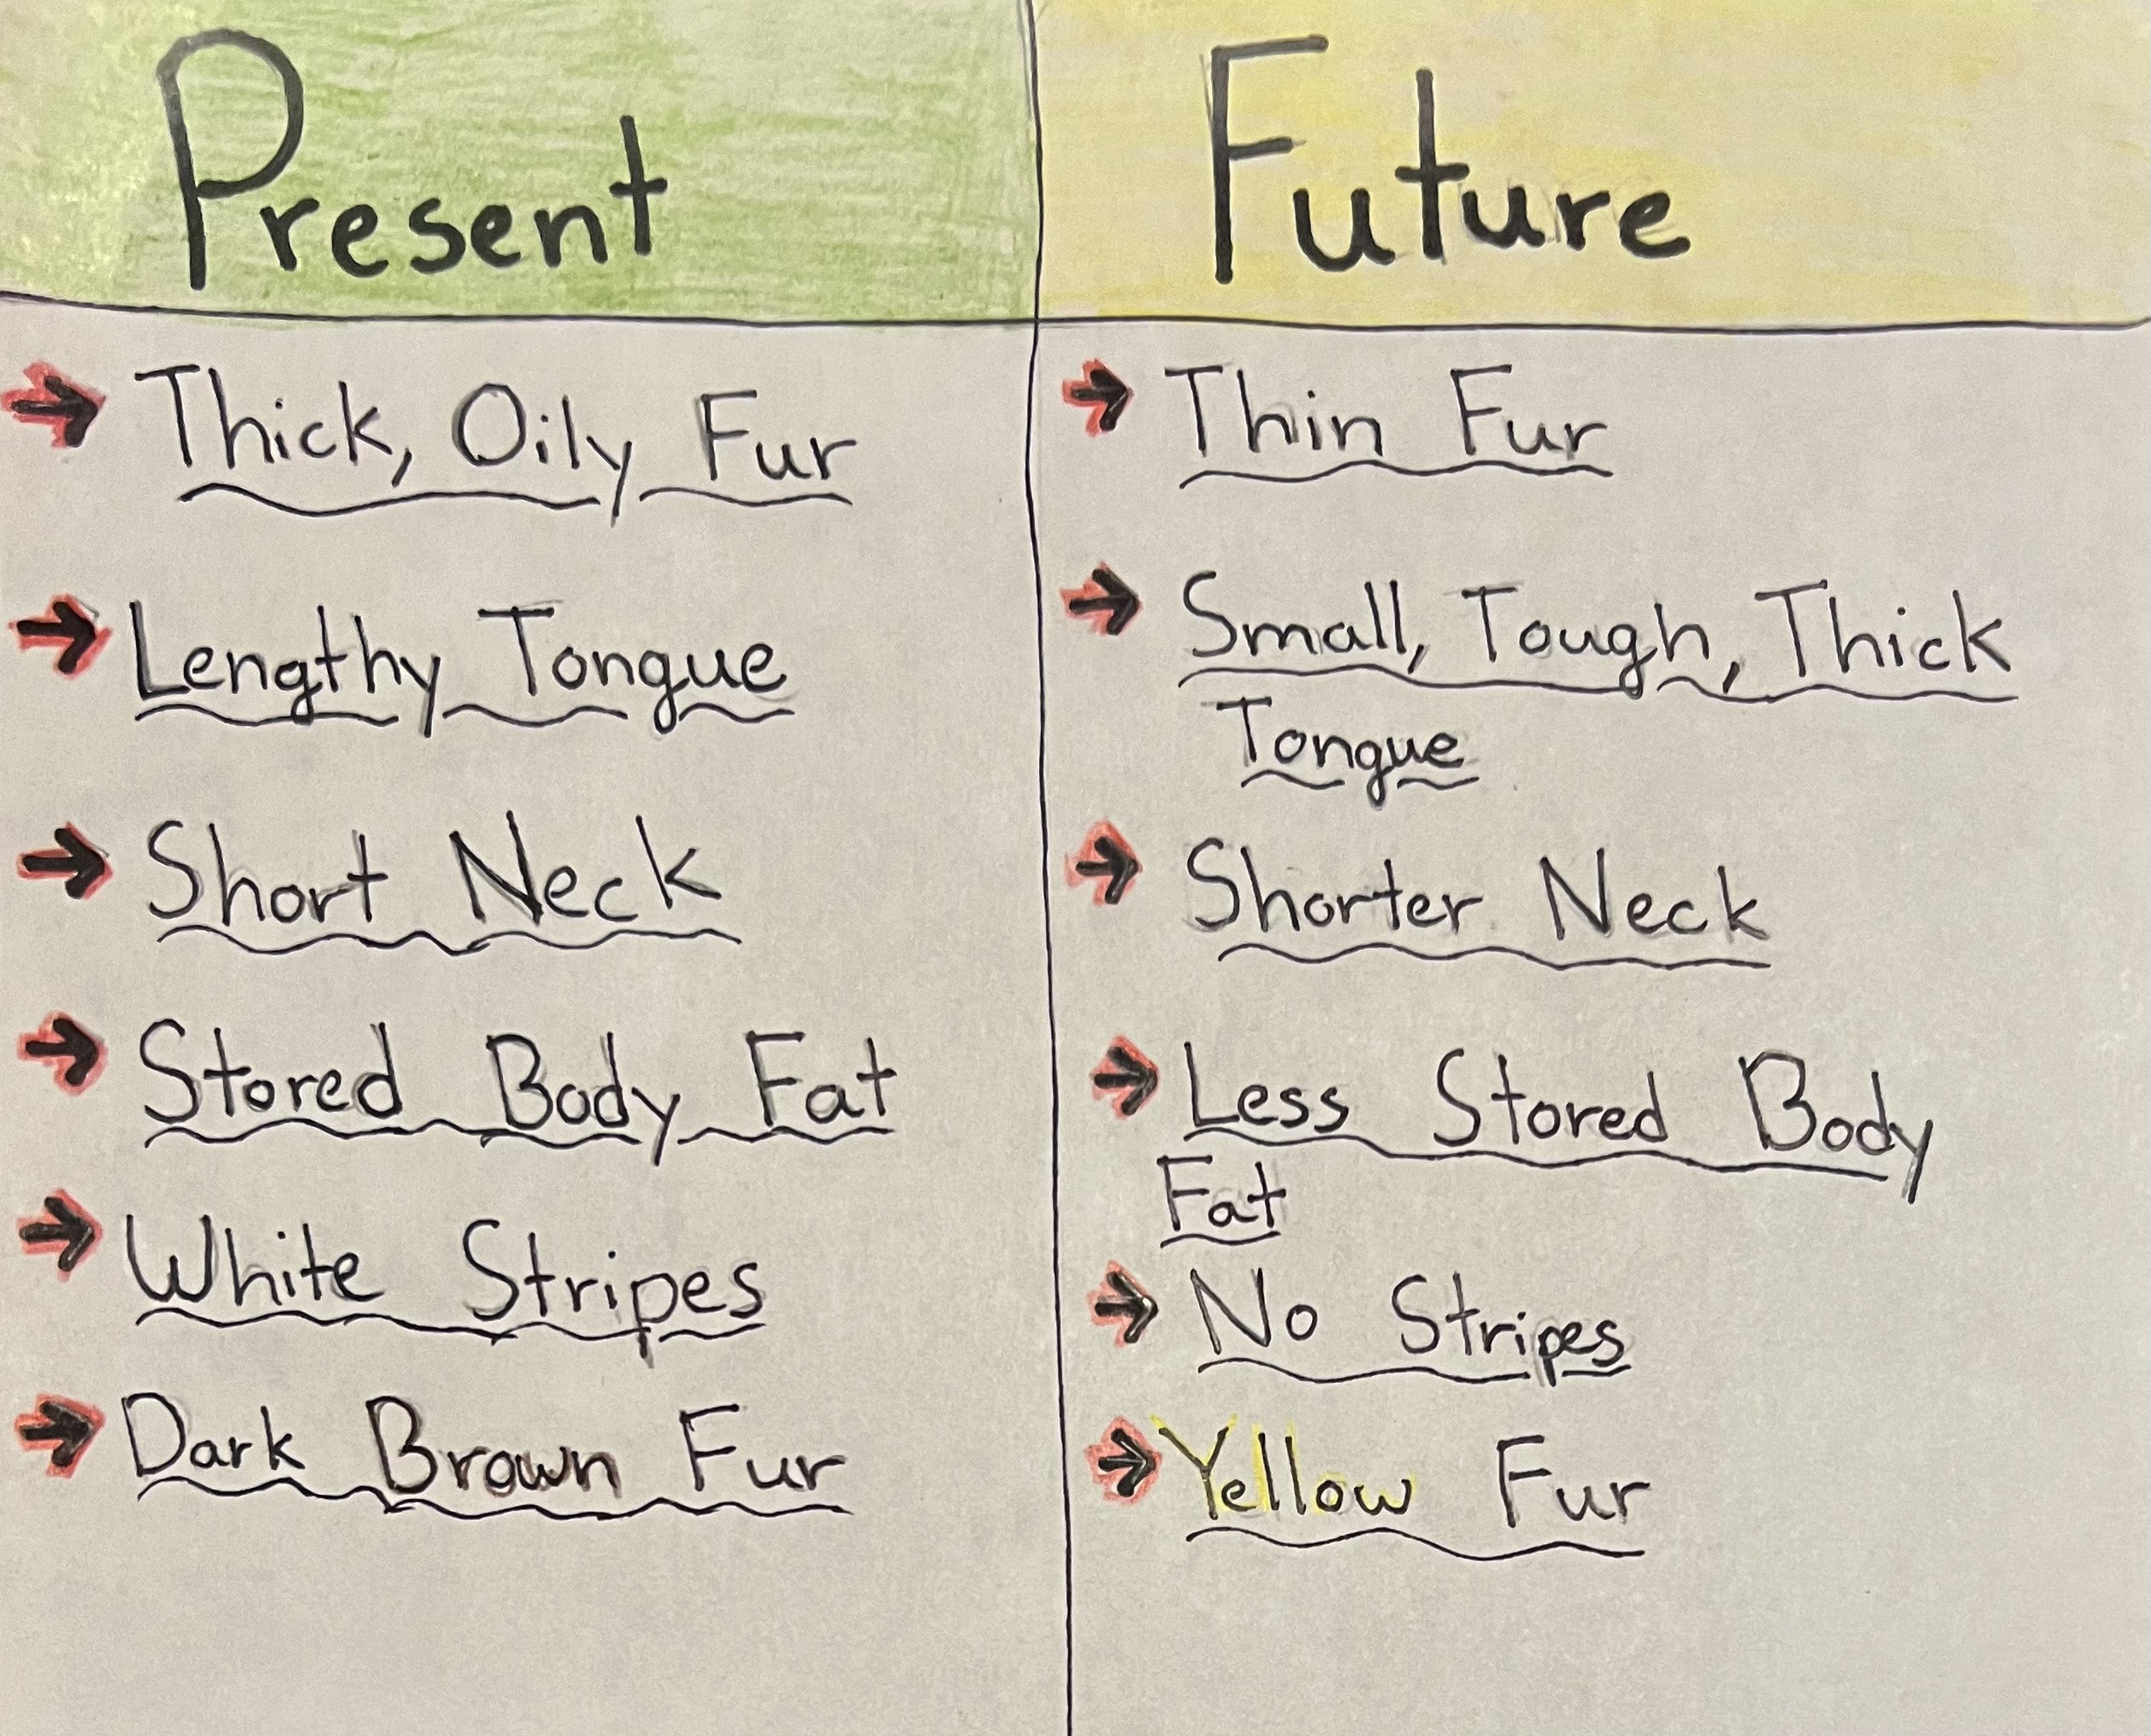 Present
Thick, Oily Fur
Lengthy Tongue
Short Neck
Stored Body Fat
White Stripes
Dark Brown Fur
Future
Thin Fur
Small, Tough, Thick
Tongue
Shorter Neck
Less Stored Body
Fat
No Stripes
Yellow Fur